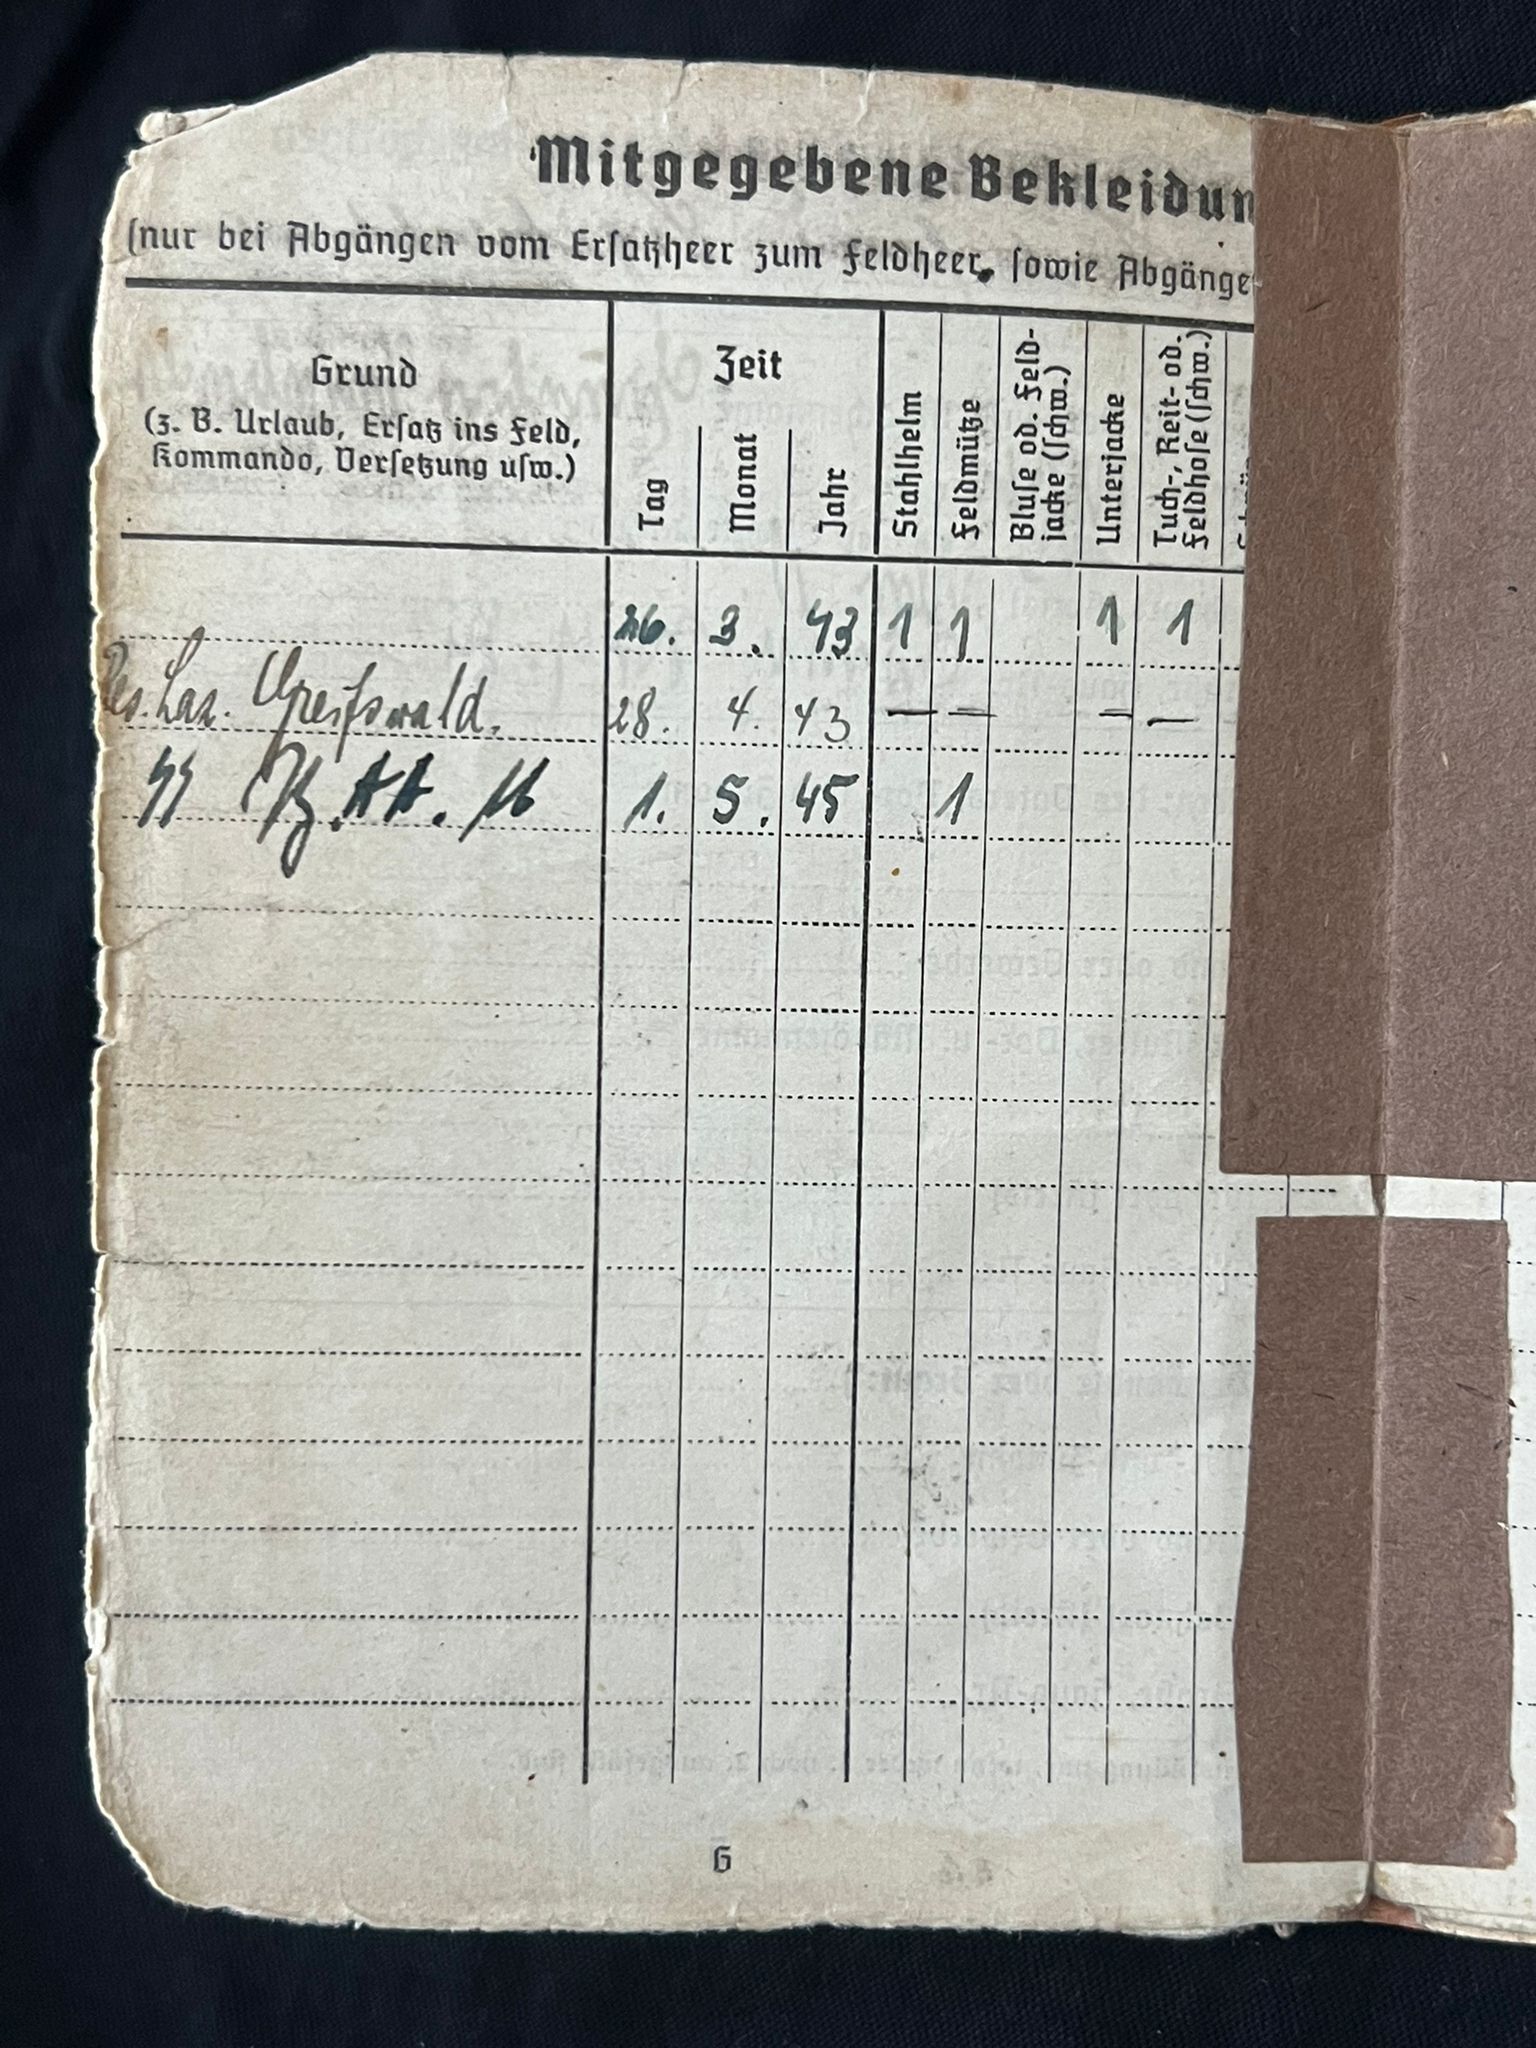 Mitgegebene Bekleidun
(nur bei Abgängen vom Ersatzheer zum Feldheer, sowie Abgänge
Grund
(z. B. Urlaub, Ersatz ins Feld,
Kommando, Versetzung usw.)
Zeit
Tag
Monat
Jahr
Stahlhelm
Feldmütze
Bluse od. Feld-
jacke (schw.)
Unterjacke
Tuch-, Reit- od.
Feldhose (schw.)
26. 3. 43 1 1 1 1
Res. Laz. Greifswald. 28. 4. 43 — — — —
SS Pz. A.A. 1. 5. 45 1
6